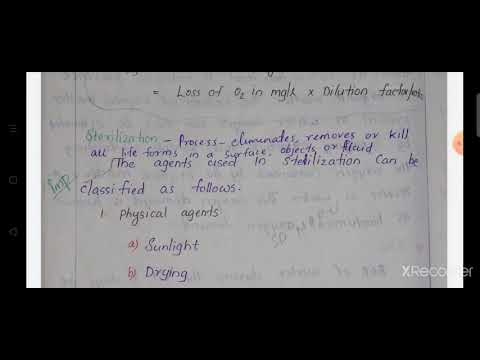 = Loss of O2 in mg/l x Dilution factor
Sterilization - Process - eliminates, removes or kill
all life forms in a surface, objects or fluid
The agents used in Sterilization can be
Imp
classified as follows.
1. Physical agents
a) Sunlight
b) Drying
XRecorder